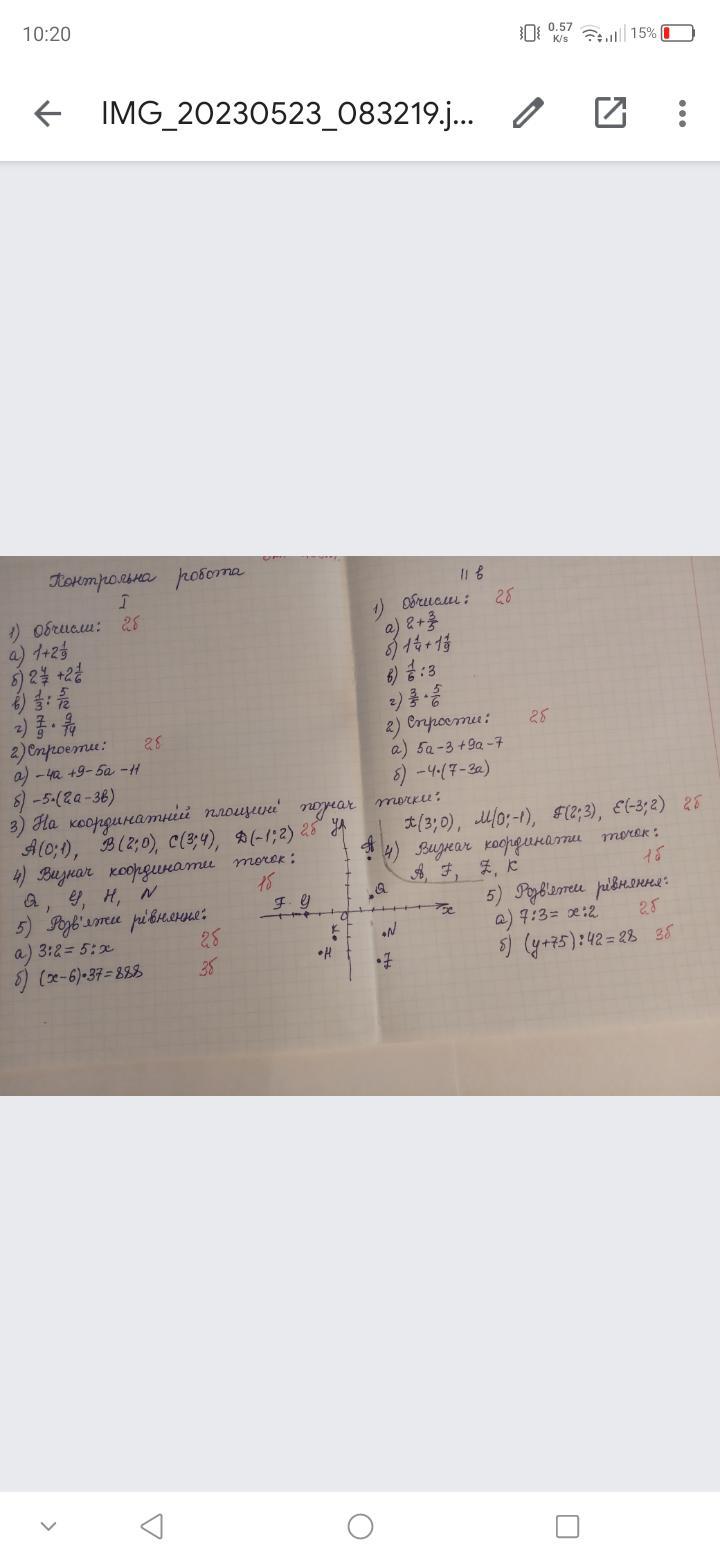 10:20
0.57 K/s
15%
IMG_20230523_083219.j...
Контрольна робота
I
1) Обчисли: 2б
а) 1+2 1/9
б) 2 4/7 +2 1/6
в) 1/3 : 5/12
г) 7/9 · 9/14
2) Спрости: 2б
а) -4а +9-5а -11
б) -5·(2а-3в)
3) На координатній площині познач точки:
А(0;1), В(2;0), С(3;4), Д(-1;2) 2б
4) Визнач координати точок:
Q, У, Н, N 1б
5) Розв'яжи рівняння:
а) 3:2 = 5:х 2б
б) (х-6)·37=888 3б
у
А
Q
F У
0
х
К
N
Н
Z
II в
1) Обчисли: 2б
а) 2+ 3/5
б) 1 1/4 +1 1/9
в) 1/6 :3
г) 3/5 · 5/6
2) Спрости: 2б
а) 5а-3+9а-7
б) -4·(7-3а)
М(0;-1), F(2;3), Е(-3;2) 2б
4) Визнач координати точок:
А, F, Z, К 1б
5) Розв'яжи рівняння:
а) 7:3= х:2 2б
б) (у+75):42=28 3б